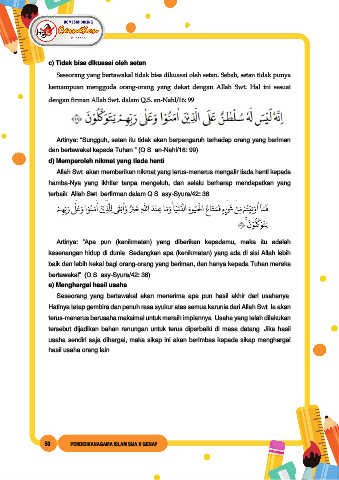 HOMESCHOOLING
c) Tidak bisa dikuasai oleh setan
Seseorang yang bertawakal tidak bisa dikuasai oleh setan. Sebab, setan tidak punya
kemampuan menggoda orang-orang yang dekat dengan Allah Swt. Hal ini sesuai
dengan firman Allah Swt. dalam Q.S. an-Nahl/16: 99
اِنَّهٗ لَيْسَ لَهٗ سُلْطٰنٌ عَلَى الَّذِيْنَ اٰمَنُوْا وَعَلٰى رَبِّهِمْ يَتَوَكَّلُوْنَ
Artinya: "Sungguh, setan itu tidak akan berpengaruh terhadap orang yang beriman
dan bertawakal kepada Tuhan " (Q S an-Nahl/16: 99)
d) Memperoleh nikmat yang tiada henti
Allah Swt akan memberikan nikmat yang terus-menerus mengalir tiada henti kepada
hamba-Nya yang ikhtiar tanpa mengeluh, dan selalu berharap mendapatkan yang
terbaik Allah Swt berfirman dalam Q S asy-Syura/42: 36
فَمَآ اُوْتِيْتُمْ مِّنْ شَيْءٍ فَمَتَاعُ الْحَيٰوةِ الدُّنْيَا وَمَا عِنْدَ اللّٰهِ خَيْرٌ وَّاَبْقٰى لِلَّذِيْنَ اٰمَنُوْا وَعَلٰى رَبِّهِمْ
يَتَوَكَّلُوْنَ
Artinya: "Apa pun (kenikmatan) yang diberikan kepadamu, maka itu adalah
kesenangan hidup di dunia Sedangkan apa (kenikmatan) yang ada di sisi Allah lebih
baik dan lebih kekal bagi orang-orang yang beriman, dan hanya kepada Tuhan mereka
bertawakal" (Q S asy-Syura/42: 36)
e) Menghargai hasil usaha
Seseorang yang bertawakal akan menerima apa pun hasil akhir dari usahanya
Hatinya tetap gembira dan penuh rasa syukur atas semua karunia dari Allah Swt Ia akan
terus-menerus berusaha maksimal untuk meraih impiannya Usaha yang telah dilakukan
tersebut dijadikan bahan renungan untuk terus diperbaiki di masa datang Jika hasil
usaha sendiri saja dihargai, maka sikap ini akan berimbas kepada sikap menghargai
hasil usaha orang lain
50 PENDIDIKAN AGAMA ISLAM SMA X GENAP